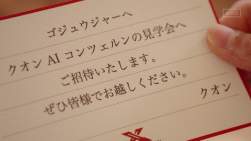 ゴジュウジャーへ
クオン AI コンツェルンの見学会へ
ご招待いたします。
ぜひ皆様でお越しください。
クオン